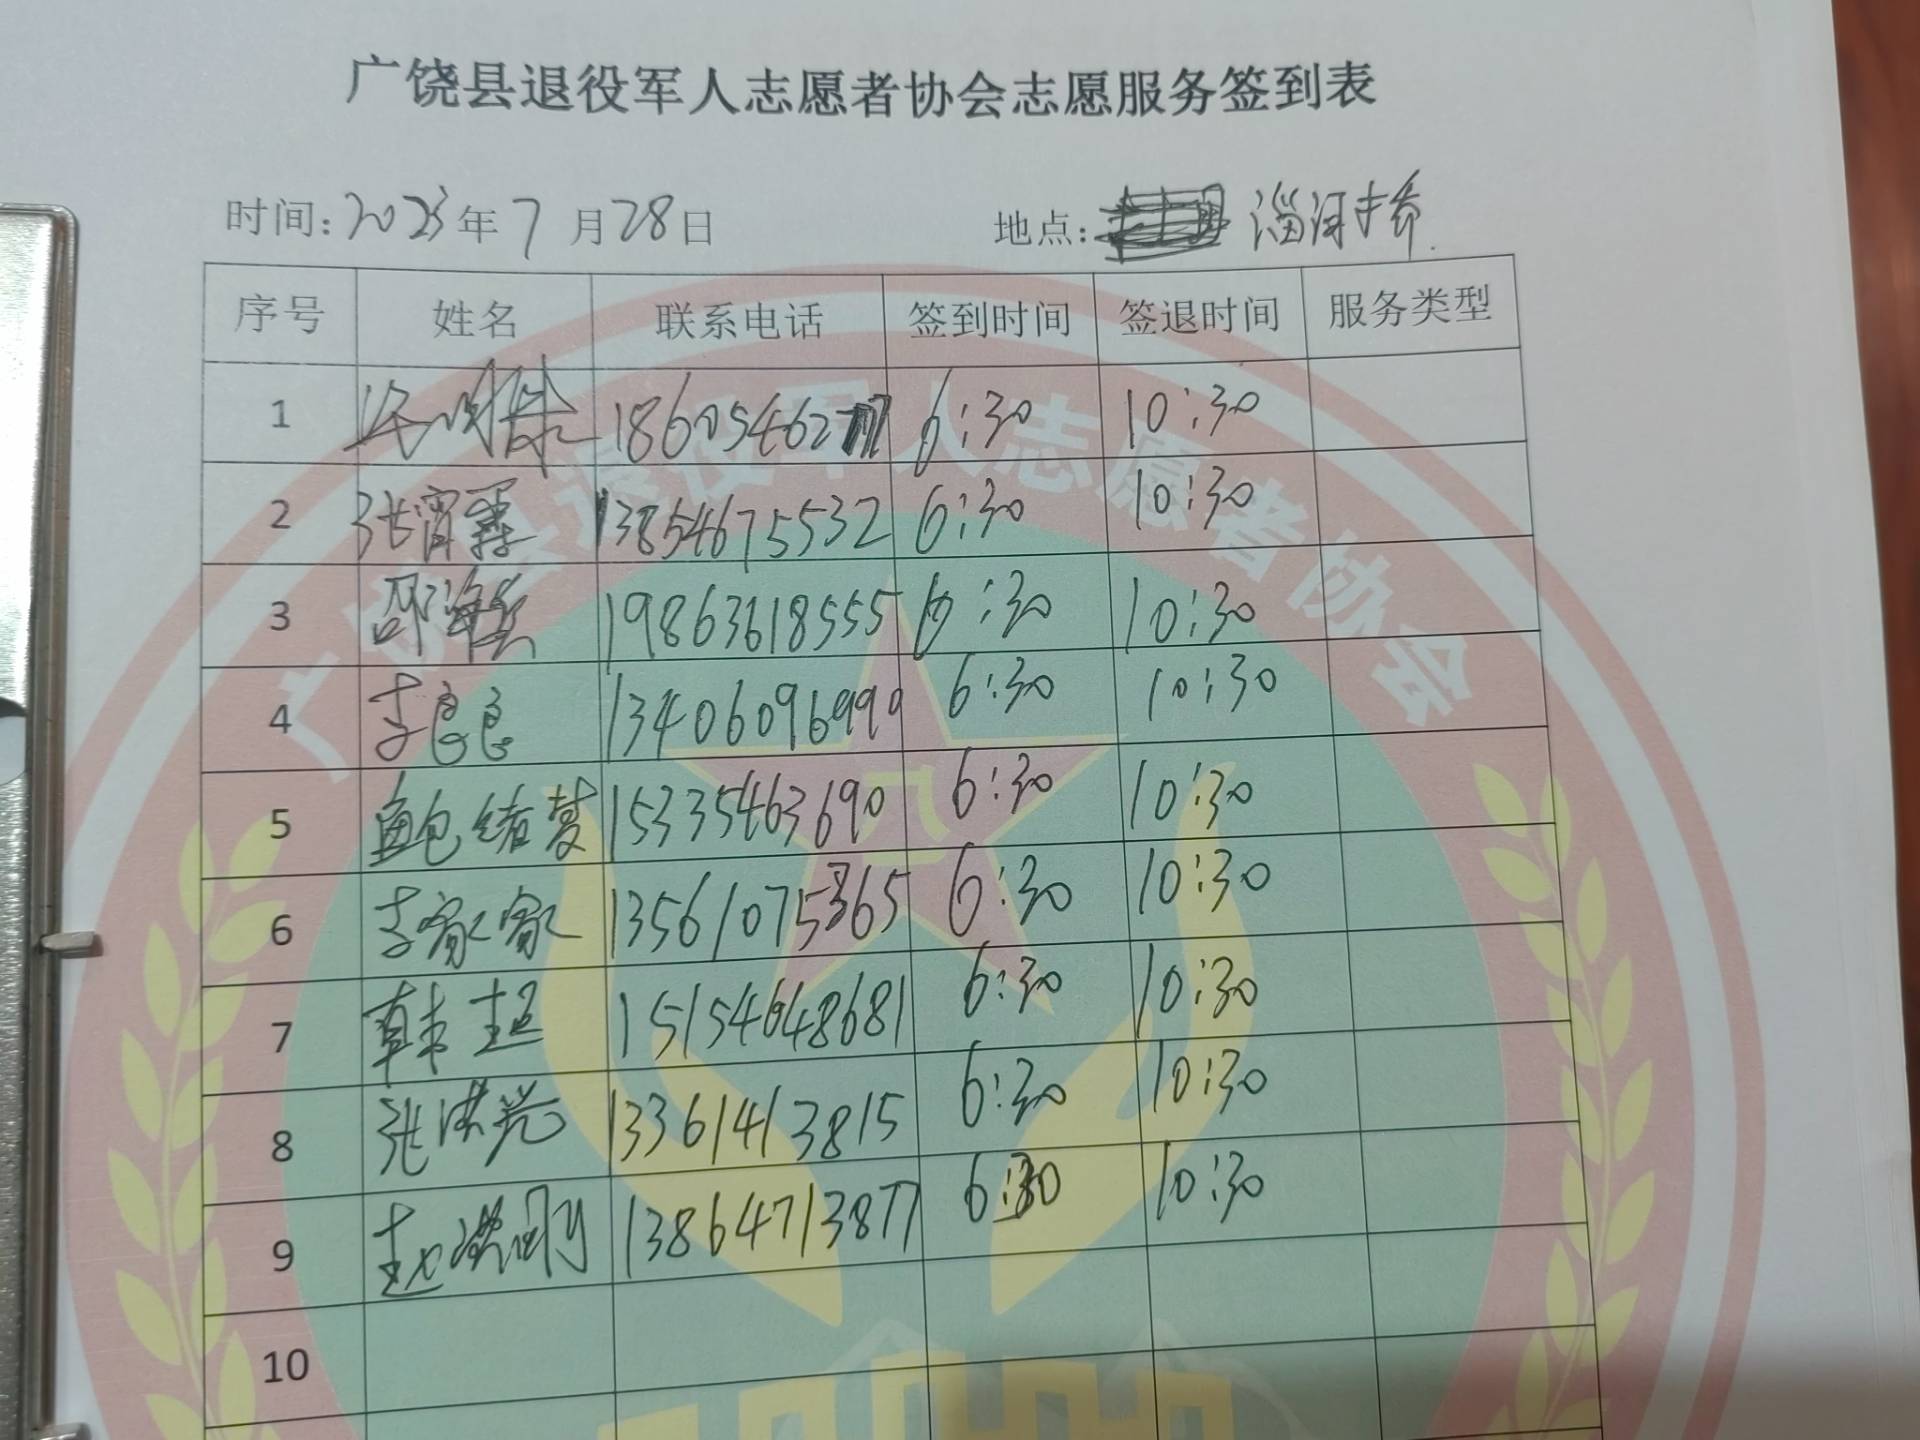 广饶县退役军人志愿者协会志愿服务签到表
时间:2023年7月28日 地点: 淄河大桥.
序号 姓名 联系电话 签到时间 签退时间 服务类型
1 186054627 6:30 10:30
2 张霄霖 13854675532 6:30 10:30
3 邵海兵 19863618555 6:30 10:30
4 李良良 13406096990 6:30 10:30
5 鲍绪梦 15335463690 6:30 10:30
6 李家家 13561075365 6:30 10:30
7 韩超 15154648681 6:30 10:30
8 张洪亮 13361413815 6:30 10:30
9 赵洪刚 13864713877 6:30 10:30
10
广饶县退役军人志愿者协会